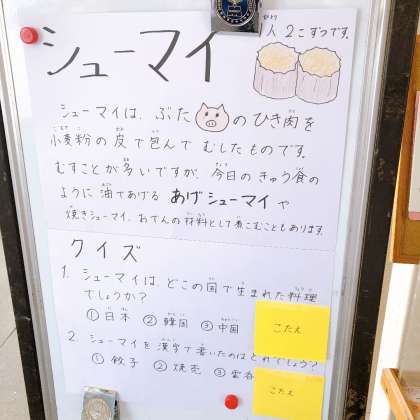 シューマイ
一人2こずつです。
シューマイは、ぶたのひき肉を
小麦粉の皮で包んでむしたものです。
むすことが多いですが、今日のきゅう食の
ように油であげるあげシューマイや
焼きシューマイ、おでんの材料として煮こむこともあります。
クイズ
1. シューマイは、どこの国で生まれた料理
でしょうか？
①日本 ②韓国 ③中国
こたえ
2. シューマイを漢字で書いたのはどれでしょう？
①餃子 ②焼売 ③雲呑
こたえ